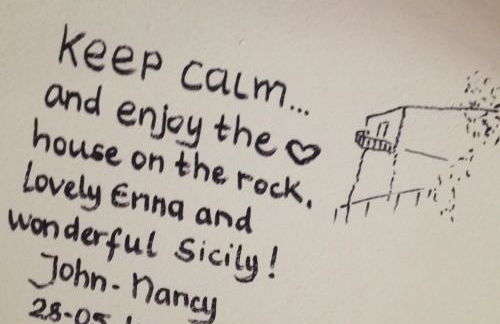 Keep calm...
and enjoy the ♡
house on the rock.
Lovely Enna and
wonderful Sicily!
John - Nancy
28-05